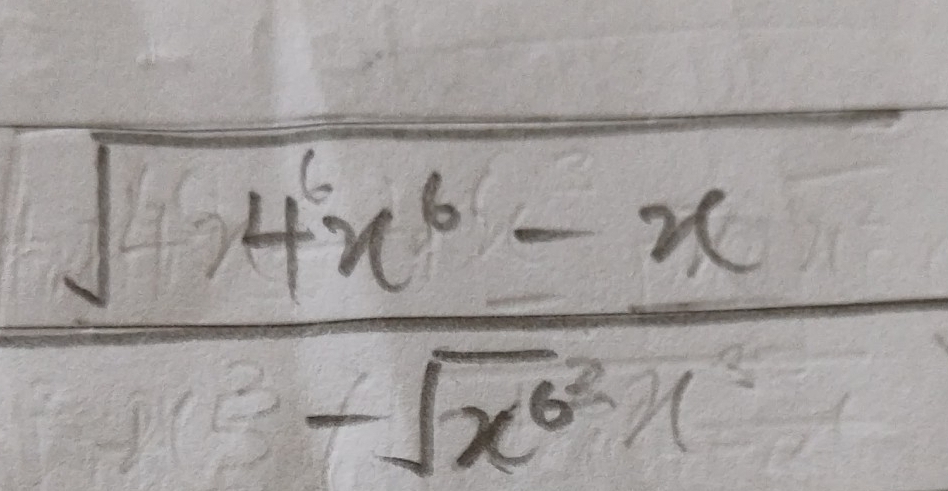 √(4⁶x⁶ - x)
-√x⁶